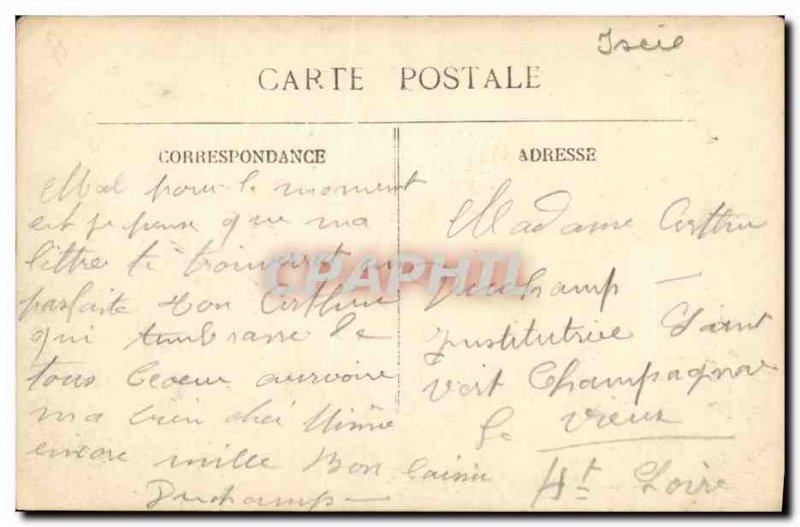 Isère
CARTE POSTALE
CORRESPONDANCE
ADRESSE
Mal pour le moment
est je pense que ma
lettre te trouverat en
parfaite ton Arthur
qui tembrasse de
tous coeur aurvoire
ma bien cher Mimie
encore mille Bon
Duchamp
Madame Arthur
Duchamp
Institutrice Saint
Vert Champagnac
le Vieux
Ht Loire
CPAPHIL